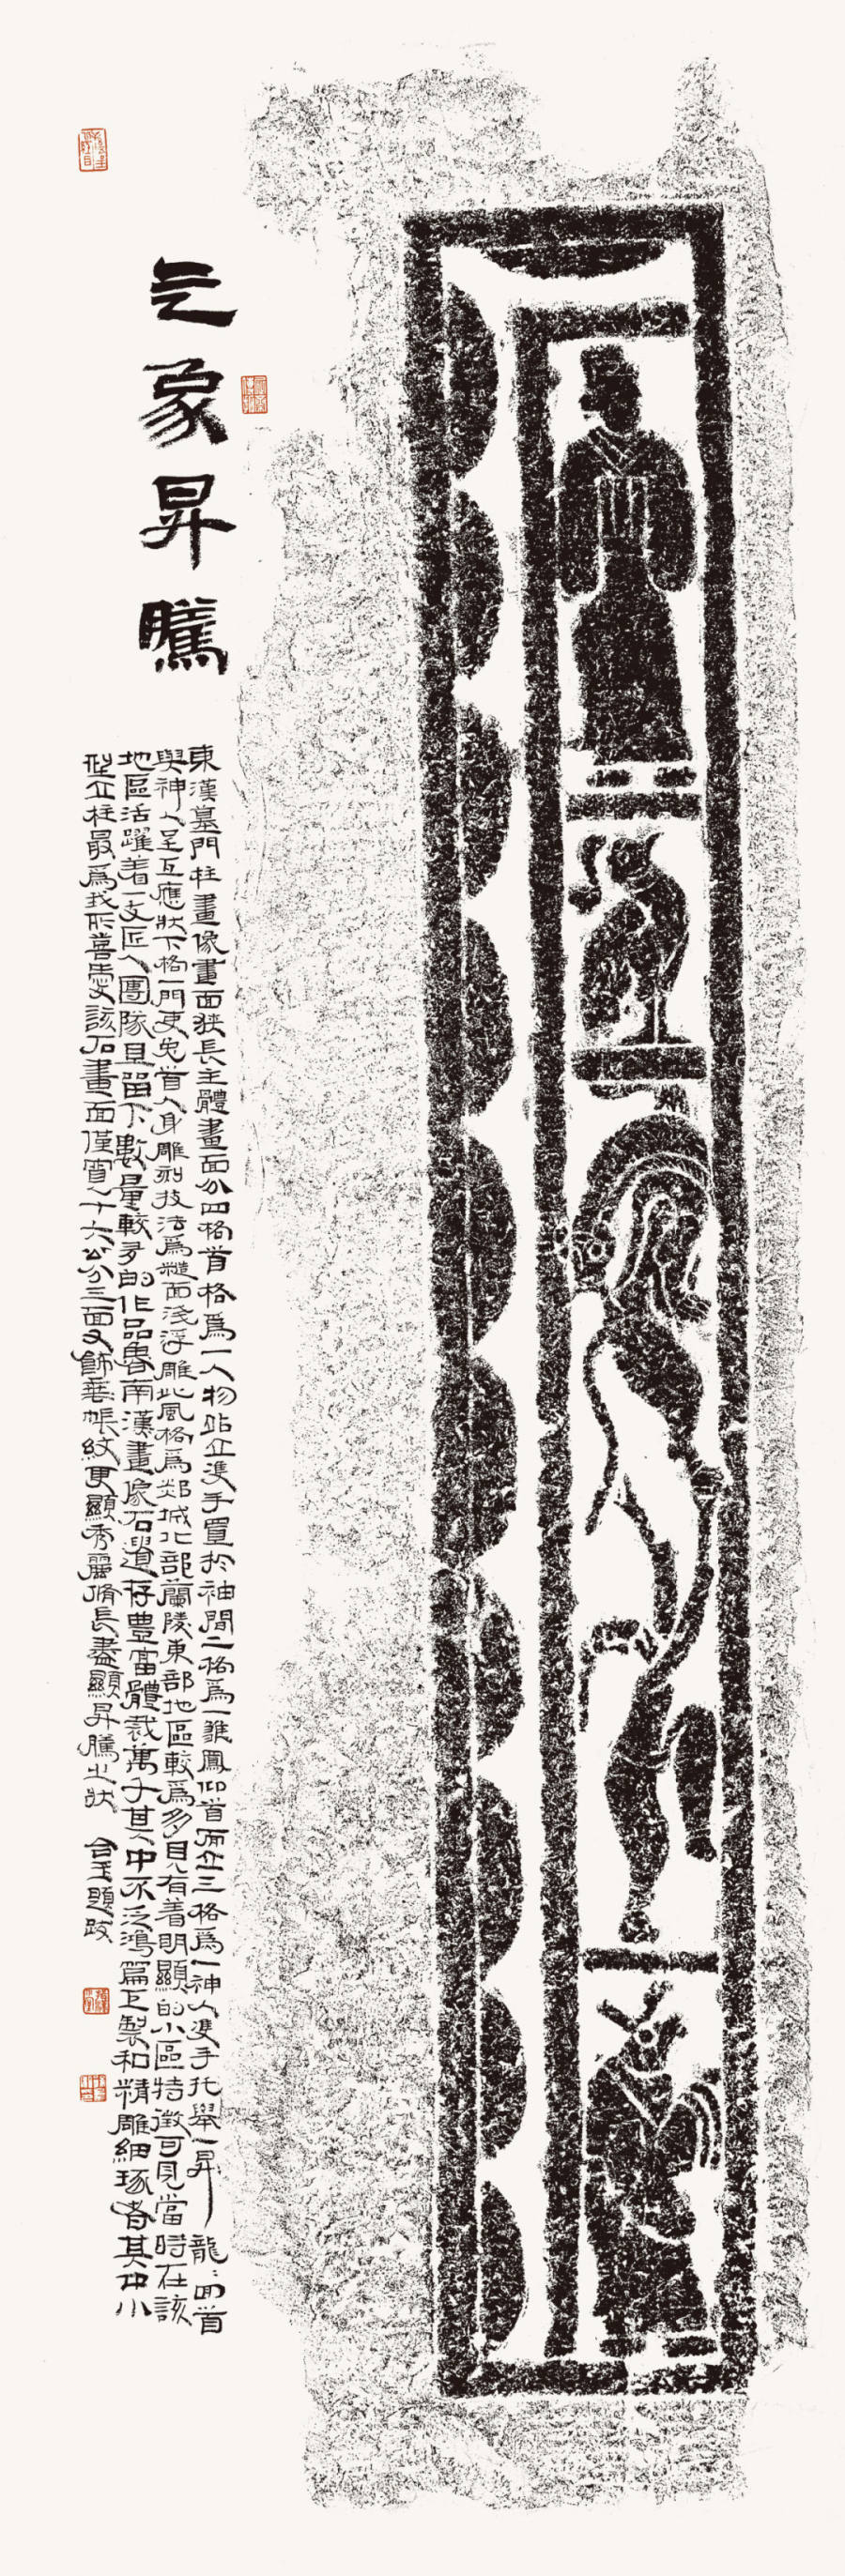 气象昇騰
東漢墓門柱畫像畫面狹長主體畫面分四格首格爲一人物站立雙手置於袖間二格爲一雞鳳仰首而立三格爲一神人雙手托舉一昇龍龍回首
與神人呈互應狀下格一門吏兔首人身雕刻技法爲糙面淺浮雕此風格爲郯城北部蘭陵東部地區較爲多見有着明顯的小區特徵可見當時在該
地區活躍着一支匠人團隊且留下數量較多的作品魯南漢畫像石遺存豊富體裁萬千其中不乏鴻篇巨製和精雕細琢者其中小
型立柱最爲我所喜愛該石畫面僅寬十六公分三面又飾垂帳紋更顯秀麗脩長盡顯昇騰之狀 合玉題跋